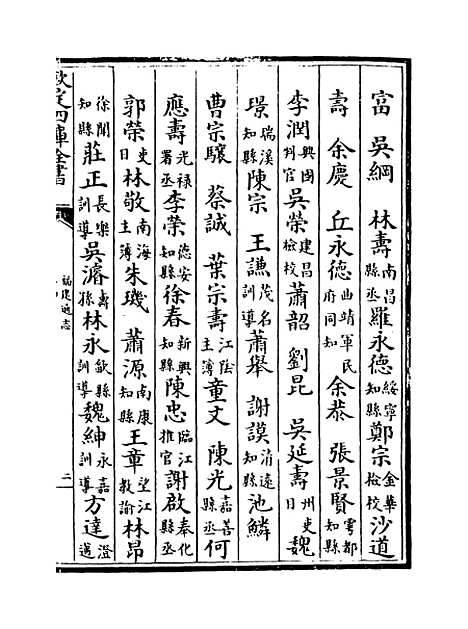 富 吳綱 林壽南昌縣丞羅永德綏寧知縣鄭宗金華檢校沙道
壽 余慶 丘永德曲靖軍民府同知余恭 張景賢雩都知縣
李潤興國判官吳榮建昌檢校蕭韶 劉昆 吳延壽州吏目魏
璟瑞溪知縣陳宗 王謙茂名訓導蕭舉 謝謨清遠知縣池鱗
曹宗驤 蔡誠 葉宗壽江陰主簿童文 陳光嘉善縣丞何
應壽光祿署丞李榮德安知縣徐春新興知縣陳忠臨江推官謝啟奉化縣丞
郭榮吏目林敬南海主簿朱璣 蕭源南康知縣王章望江教諭林昂
徐聞知縣莊正長樂訓導吳濬壽孫林永歙縣訓導魏紳永嘉訓導方達澄邁
欽定四庫全書
福建通志
二